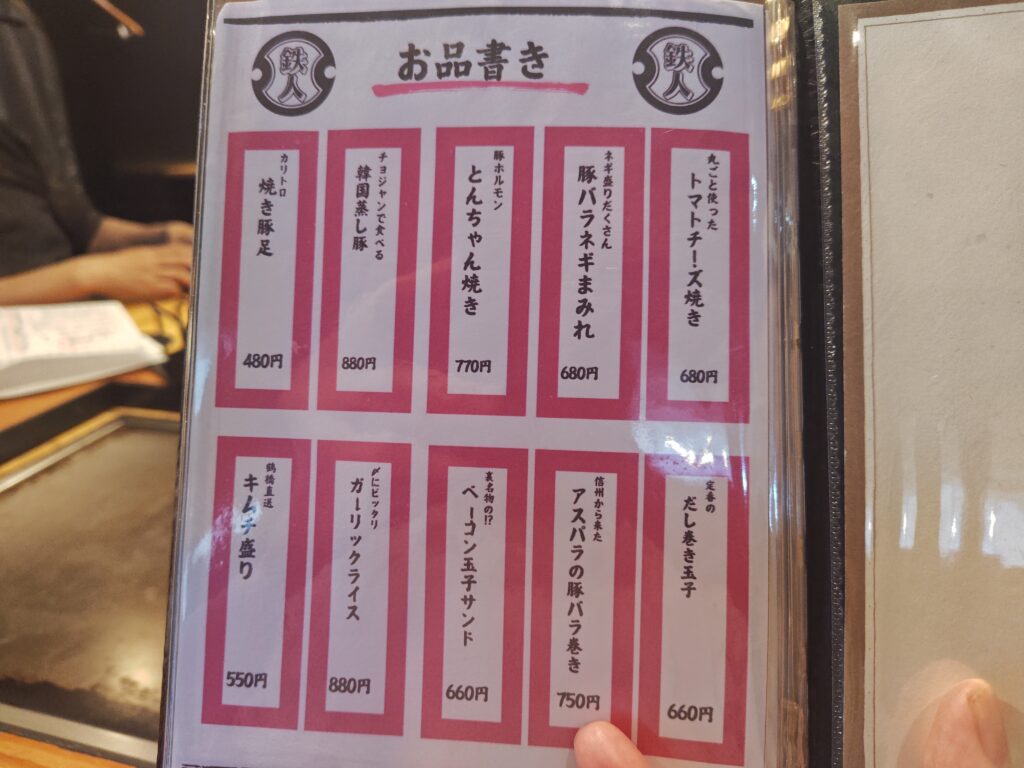 鉄人
お品書き
鉄人
丸ごと使った
トマトチーズ焼き
680円
ネギ盛りだくさん
豚バラネギまみれ
680円
豚ホルモン
とんちゃん焼き
770円
チョジャンで食べる
韓国蒸し豚
880円
カリトロ
焼き豚足
480円
定番の
だし巻き玉子
660円
信州から来た
アスパラの豚バラ巻き
750円
裏名物の!?
ベーコン玉子サンド
660円
〆にピッタリ
ガーリックライス
880円
鶴橋直送
キムチ盛り
550円